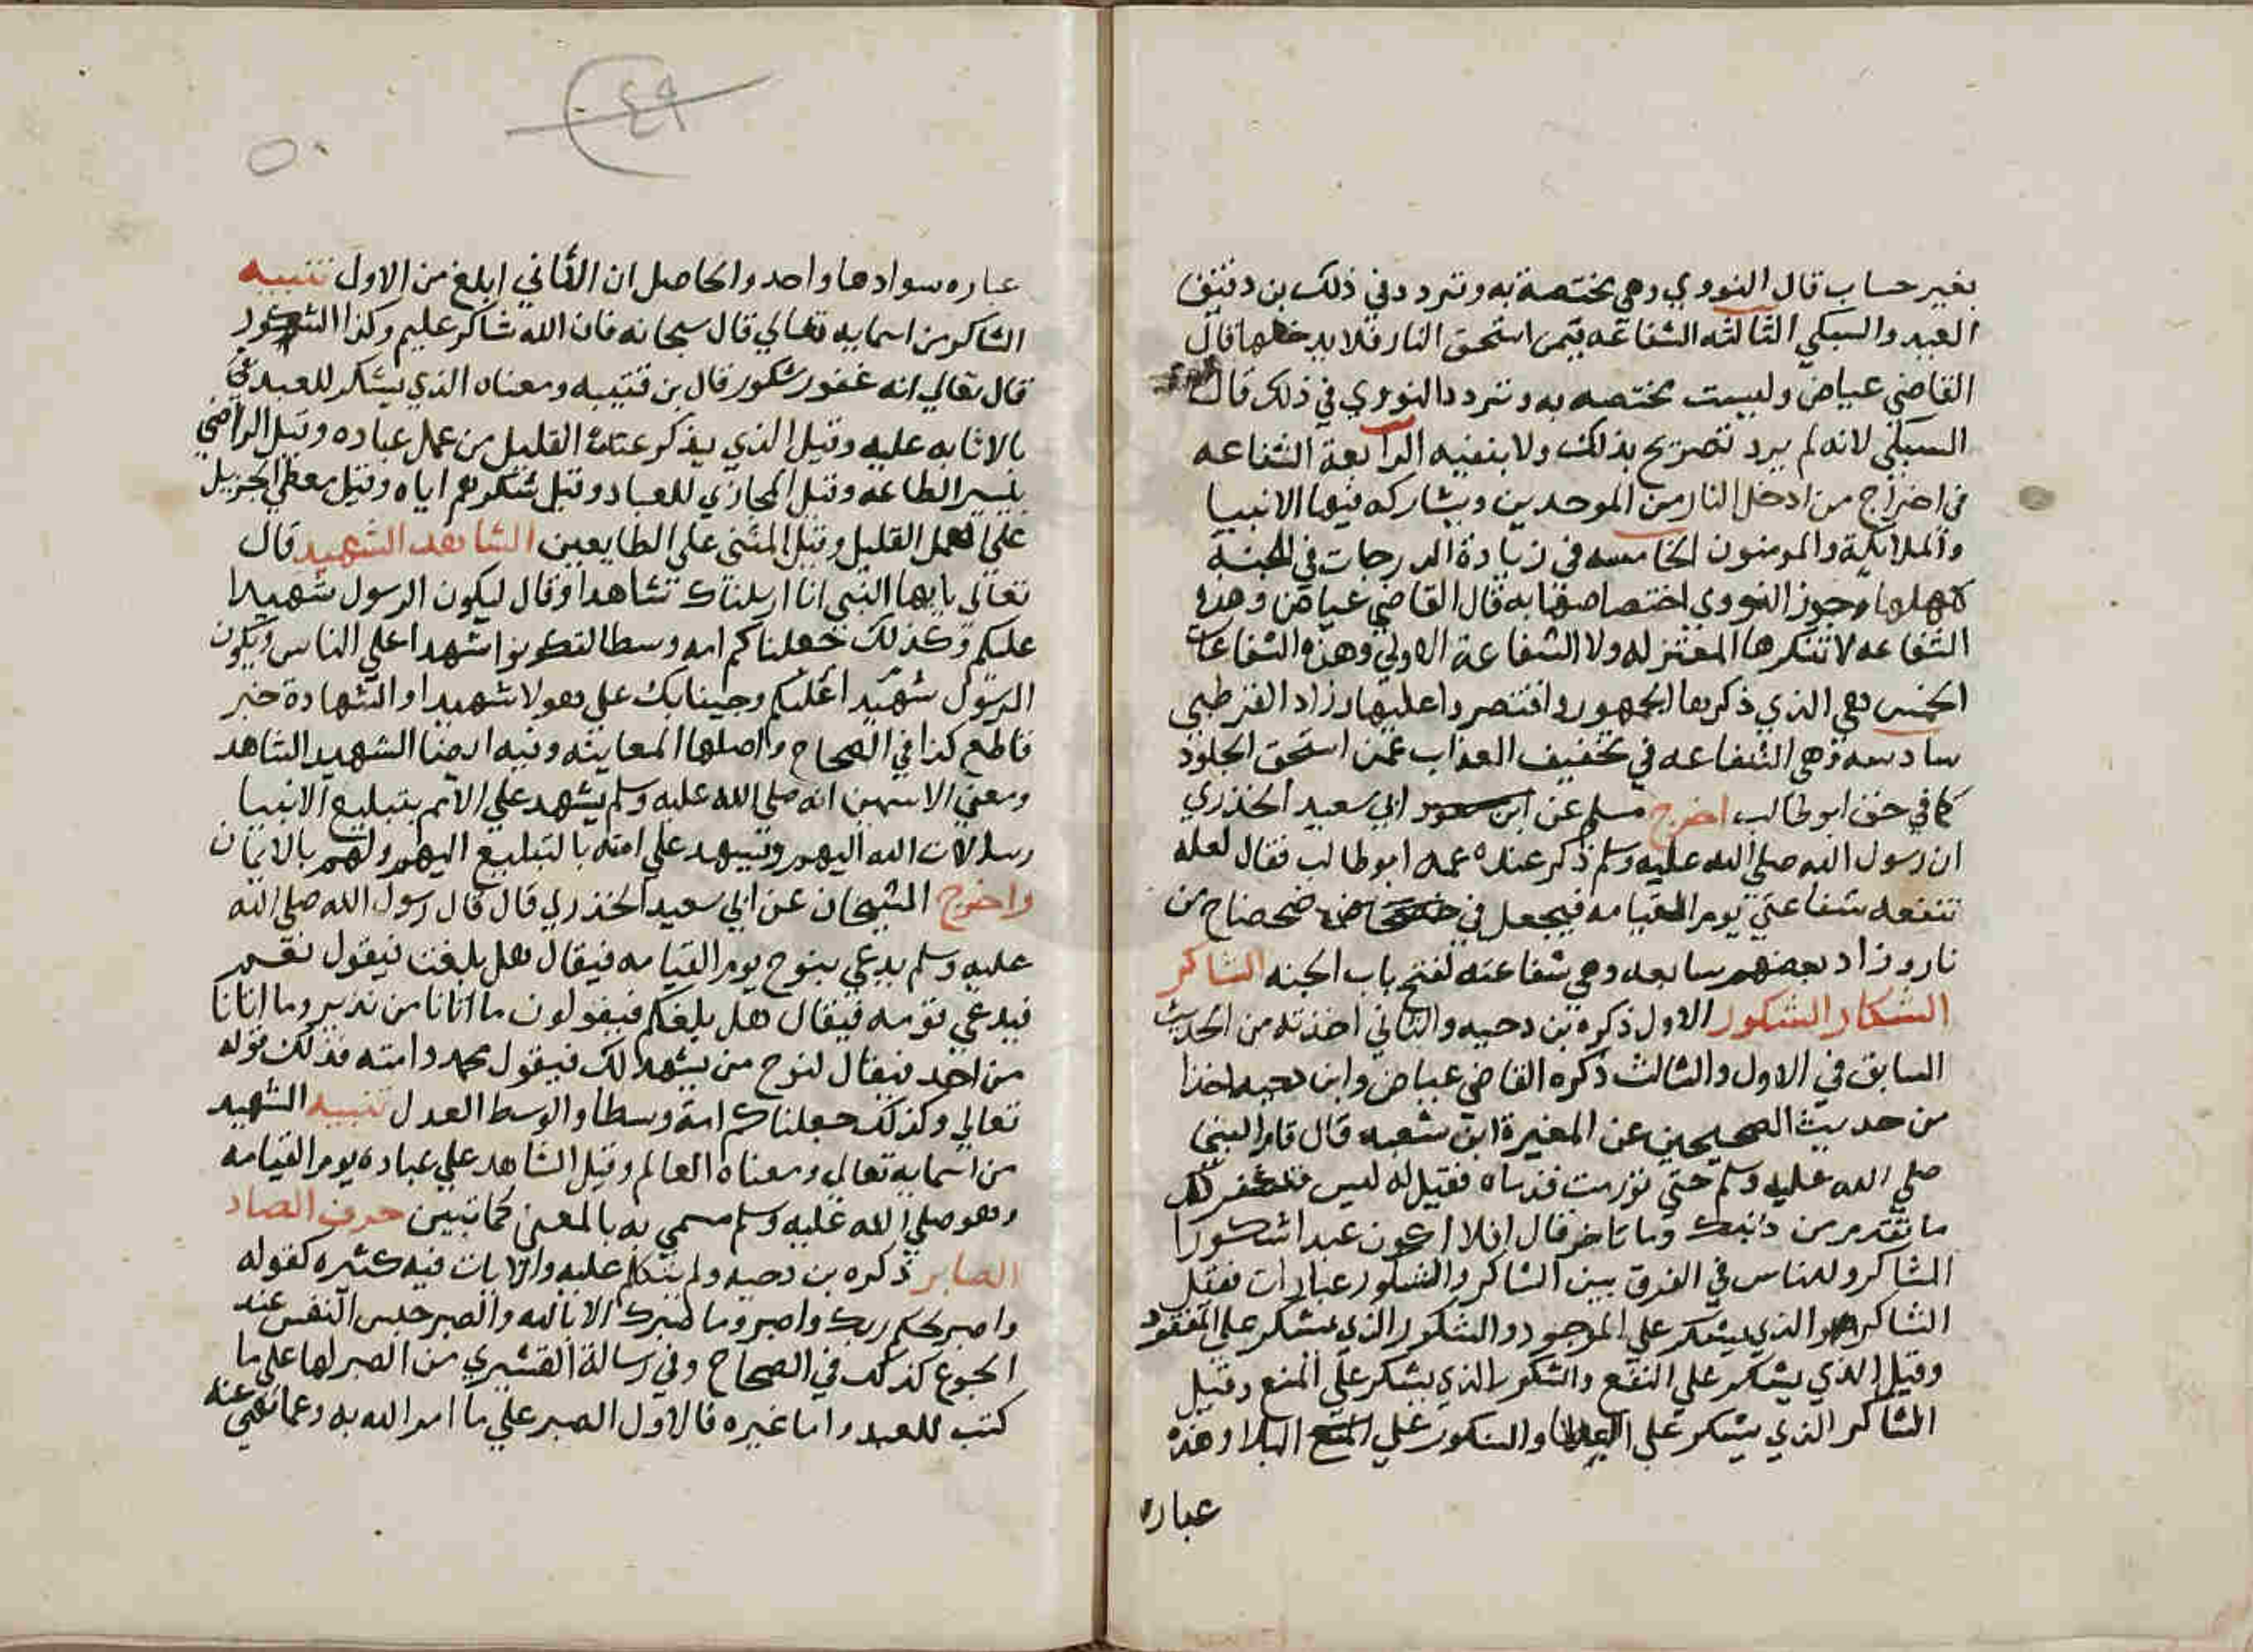 بغير حساب قال النووي وهي مختصة به وتردد في ذلك بن دقيق
العيد والسبكي الثالثه الشفاعه فيمن استحق النار فلا يدخلها قال
القاضي عياض وليست مختصه به وتردد النووي في ذلك قال
السبكي لانه لم يرد تصريح بذلك ولا بنفيه الرابعة الشفاعه
في اخراج من ادخل النار من الموحدين ويشاركه فيها الانبيا
والملايكة والمومنون الخامسه في زيادة الدرجات في الجنة
لاهلها وجوز النووي اختصاصها به قال القاضي عياض وهذه
الشفاعه لا تنكرها المعتزله ولا الشفاعة الاولي وهذه الشفاعات
الخمس هي الذي ذكرها الجمهور واقتصروا عليها وزاد القرطبي
سادسه وهي الشفاعه في تخفيف العذاب عمن استحق الخلود
كما في حق ابو طالب اخرج مسلم عن ابي سعيد الخذري
ان رسول الله صلي الله عليه وسلم ذكر عنده عمه ابو طالب فقال لعله
تنفعه شفاعتي يوم القيامه فيجعل في ضحضاح من
نار وزاد بعضهم سابعه وهي شفاعته لفتح باب الجنه الشاكر
الشكار الشكور الاول ذكره بن دحيه والثاني اخذته من الحديث
السابق في الاول والثالث ذكره القاضي عياض وابن دحيه اخذا
من حديث الصحيحين عن المغيرة ابن شعبه قال قام النبي
صلي الله عليه وسلم حتي تورمت قدماه فقيل له ليس قد غفر لك
ما تقدم من ذنبك وما تاخر قال افلا اكون عبدا شكورا
الشاكر وللناس في الفرق بين الشاكر والشكور عبارات فقيل
الشاكر هو الذي يشكر علي الموجود والشكور الذي يشكر علي المفقود
وقيل الذي يشكر علي النفع والشكور الذي يشكر علي المنع وقيل
الشاكر الذي يشكر علي العطا والشكور علي البلا وهذه
عباره
٤٩
٥٠
عباره سوادها واحد والحاصل ان الثاني ابلغ من الاول تنبيه
الشاكر من اسمايه تعالي قال سبحانه فان الله شاكر عليم وكذا الشكور
قال تعالي انه غفور شكور قال بن قتيبه ومعناه الذي يشكر للعبد
بالاثابه عليه وقيل الذي يذكر عنك القليل من عمل عباده وقيل الراضي
بيسير الطاعه وقيل المجازي للعباد وقيل شكرهم اياه وقيل معطي الجزيل
علي العمل القليل وقيل المثني علي الطايعين الشاهد الشهيد قال
تعالي يايها النبي انا ارسلناك شاهدا وقال ليكون الرسول شهيدا
عليكم وكذلك جعلناكم امه وسطا لتكونوا شهدا علي الناس ويكون
الرسول شهيدا عليكم وجينا بك علي هولا شهيدا والشهادة خبر
قاطع كذا في الصحاح واصلها المعاينه وفيه ايضا الشهيد الشاهد
ومعني الاسمين انه صلي الله عليه وسلم يشهد علي الامم بتبليغ الانبيا
رسالات الله اليهم وتيشهد علي امته بالتبليغ اليهم ولهم بالايمان
واخرج الشيخان عن ابي سعيد الخذري قال قال رسول الله صلي الله
عليه وسلم يدعي بنوح يوم القيامه فيقال هل بلغت فيقول نعم
فيدعي قومه فيقال هل بلغكم فيقولون ما اتانا من نذير وما اتانا
من احد فيقال لنوح من يشهد لك فيقول محمد وامته فذلك قوله
تعالي وكذلك جعلناكم امة وسطا والوسط العدل تنبيه الشهيد
من اسمايه تعالي ومعناه العالم وقيل الشاهد علي عباده يوم القيامه
وهو صلي الله عليه وسلم مسمي به بالمعني كما تبين حرف الصاد
الصابر ذكره بن دحيه ولم يتكلم عليه والايات فيه كثيره كقوله
واصبر لحكم ربك واصبر وما صبرك الا بالله والصبر حبس النفس عند
الجوع كذلك في الصحاح وفي رسالة القشيري من الصبر لها علي ما
كتب للعبد واما غيره فالاول الصبر علي ما امر الله به وعما نهي عنه